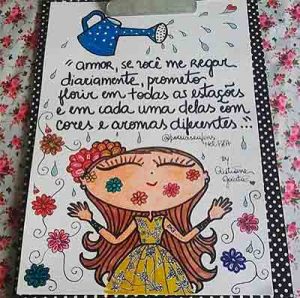 "AMOR, se você me Regar
diariamente, prometo
florir em todas as estações
e em cada uma delas com
cores e aromas diferentes..."
by